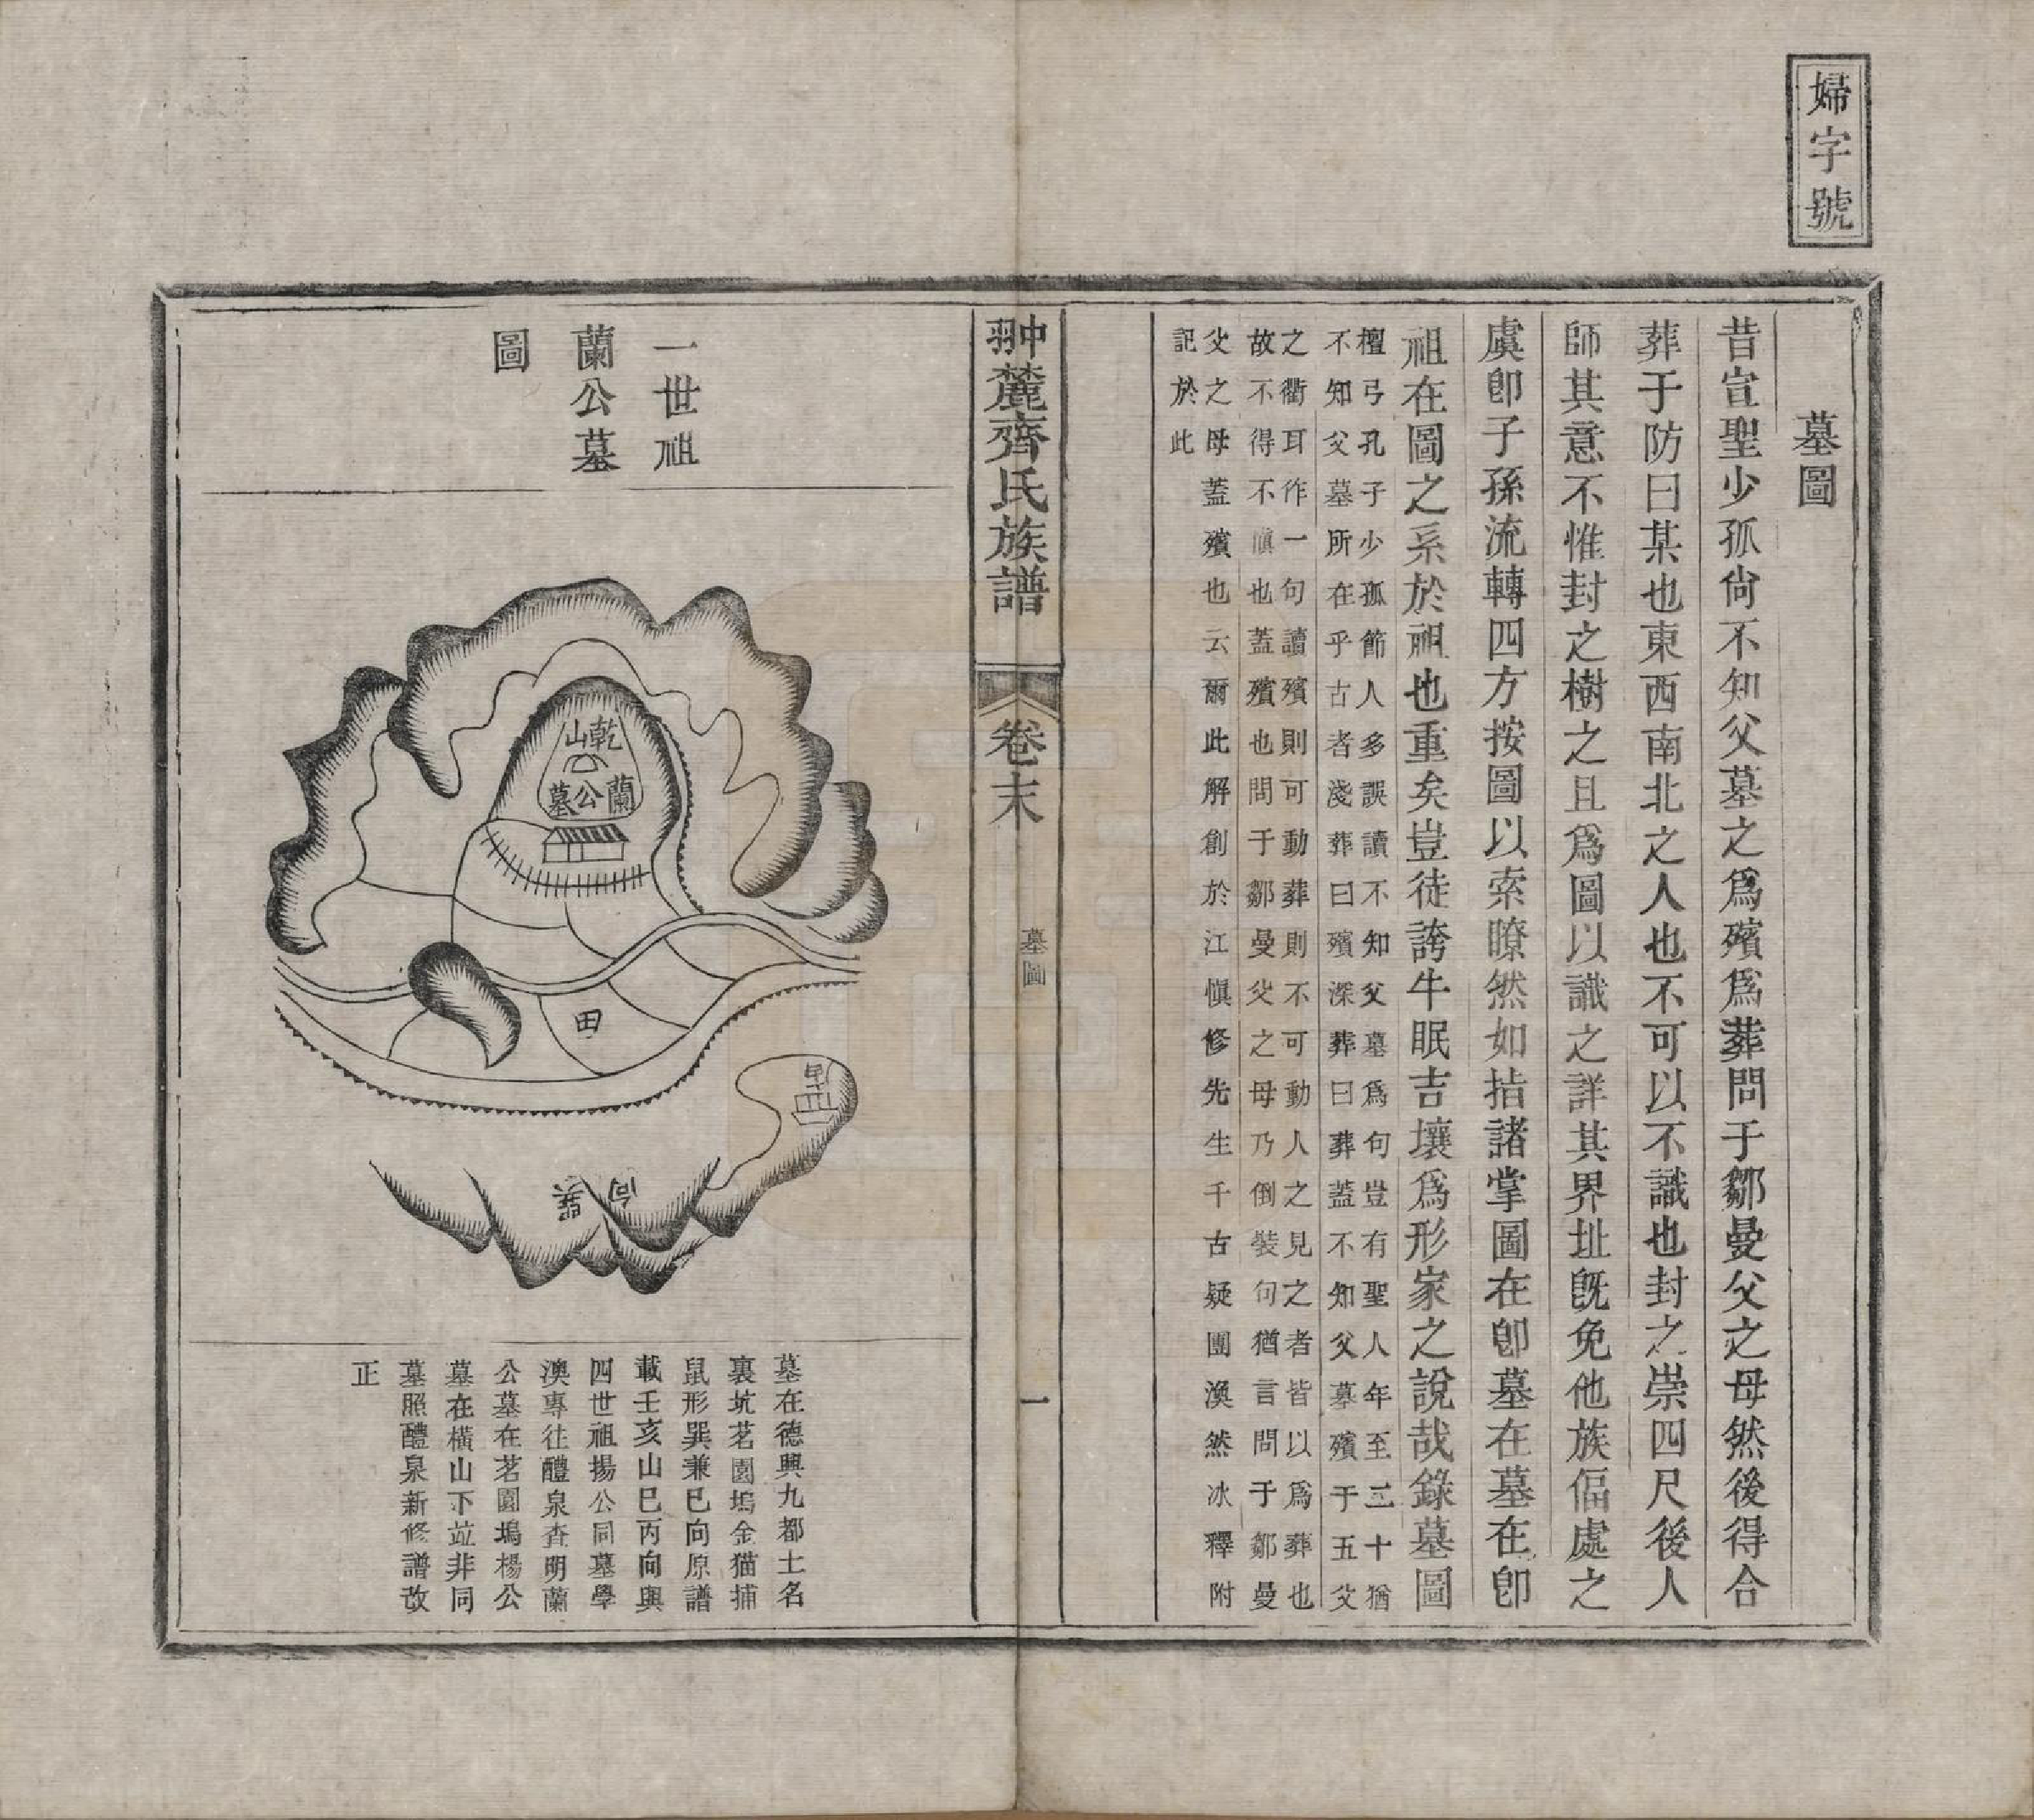 婦字號
墓圖
昔宣聖少孤尙不知父墓之爲殯爲葬問于鄹曼父之母然後得合
葬于防曰某也東西南北之人也不可以不識也封之崇四尺後人
師其意不惟封之樹之且爲圖以識之詳其界址旣免他族偪處之
虞卽子孫流轉四方按圖以索瞭然如指諸掌圖在卽墓在墓在卽
祖在圖之系於祖也重矣豈徒誇牛眠吉壤爲形家之說哉錄墓圖
檀弓孔子少孤節人多誤讀不知父墓爲句豈有聖人年至三十猶
不知父墓所在乎古者淺葬曰殯深葬曰葬蓋不知父墓殯于五父
之衢耳作一句讀殯則可動葬則不可動人之見之者皆以爲葬也
故不得不愼也蓋殯也問于鄹曼父之母乃倒裝句猶言問于鄹曼
父之母蓋殯也云爾此解創於江愼修先生千古疑團渙然冰釋附
記於此
翀麓齊氏族譜
卷末
墓圖
一
一世祖
蘭公墓
圖
乾山
蘭公墓
田
向
巽
墓在德興九都土名
裏坑茗園塢金猫捕
鼠形巽兼巳向原譜
載壬亥山巳丙向與
四世祖揚公同墓學
澳專往醴泉查明蘭
公墓在茗園塢楊公
墓在橫山下竝非同
墓照醴泉新修譜改
正